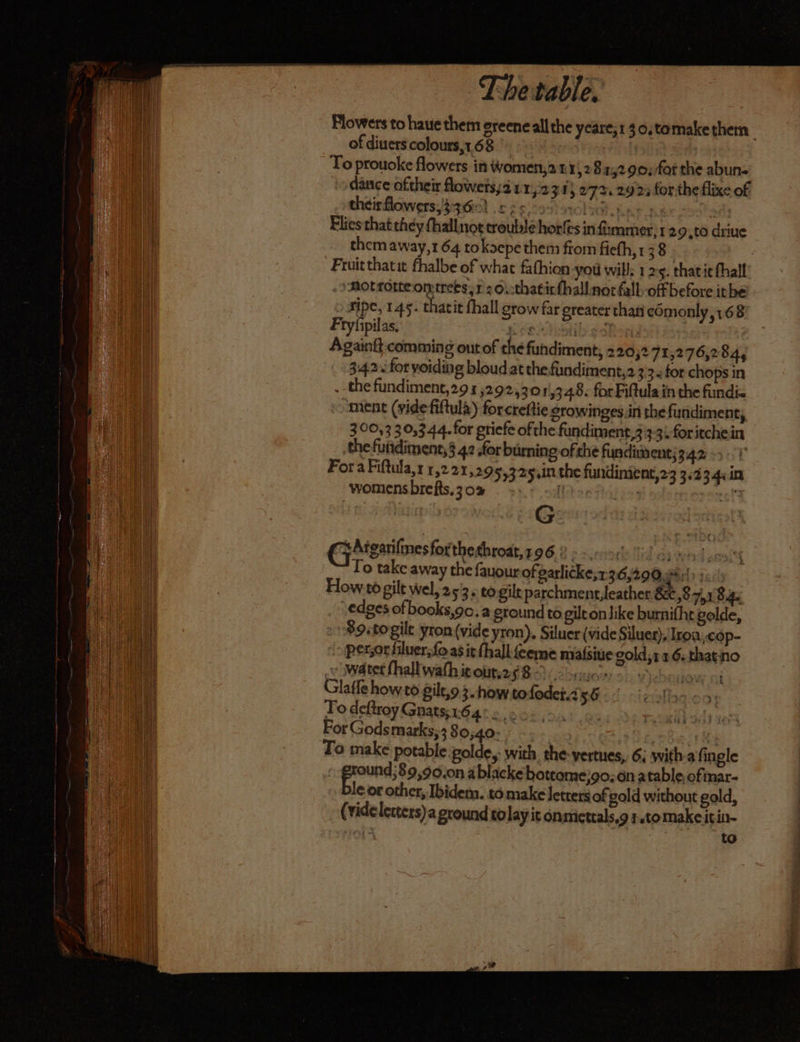 The table.
Flowers to haue them greene all the yeare, 130. to make them
of diuers colours, 168
To prouoke flowers in women, 211, 281, 290. for the abun-
dance of their flowers, 211, 231, 272. 292, for the flixe of
their flowers, 336
Flies that they ſhall not trouble horſes in ſummer, 129, to driue
them away, 164 to keepe them from fleſh, 138
Fruit that it ſhalbe of what faſhion you will, 125. that it ſhall
not rotte on trees, 150. that it ſhall not fall off before it be
ripe, 145. that it ſhall grow far greater than comonly, 168
Fryſipilas,
Againſt comming out of the fundiment, 220, 271, 276, 284,
342. for voiding bloud at the fundiment, 233. for chops in
the fundiment, 291, 292, 301, 348. for Fiſtula in the fundi-
ment (vide fiſtula) for creſtie growinges in the fundiment,
300, 330, 344. for griefe of the fundiment, 333. for itche in
the fundiment, 342 for burning of the fundiment, 342
For a Fiſtula, 11, 221, 295, 325, in the fundiment, 233. 234. in
womens breſts. 302
G
GArgariſmes for the throat, 196
To take away the ſauour of garlicke, 136, 290
How to gilt wel, 253. to gilt parchment, leather &c, 87, 184.
edges of books, 90. a ground to gilt on like burniſht golde,
89. to gilt yron (vide yron). Siluer (vide Siluer). Iron, cop-
per, or ſiluer, ſo as it ſhall ſeeme maſsiue gold, 116. that no
water ſhall waſh it out, 258
Glaſſe how to gilt, 93. how to ſoder. 256
To deſtroy Gnats, 164
For Gods markes, 380, 40.
To make potable golde, with the vertues, 6. with a ſingle
ground, 89, 90. on a blacke bottome, 90. on a table of mar-
ble or other, Ibidem. to make letters of gold without gold,
(vide letters) a ground to lay it on mettals, 91. to make it in-
to